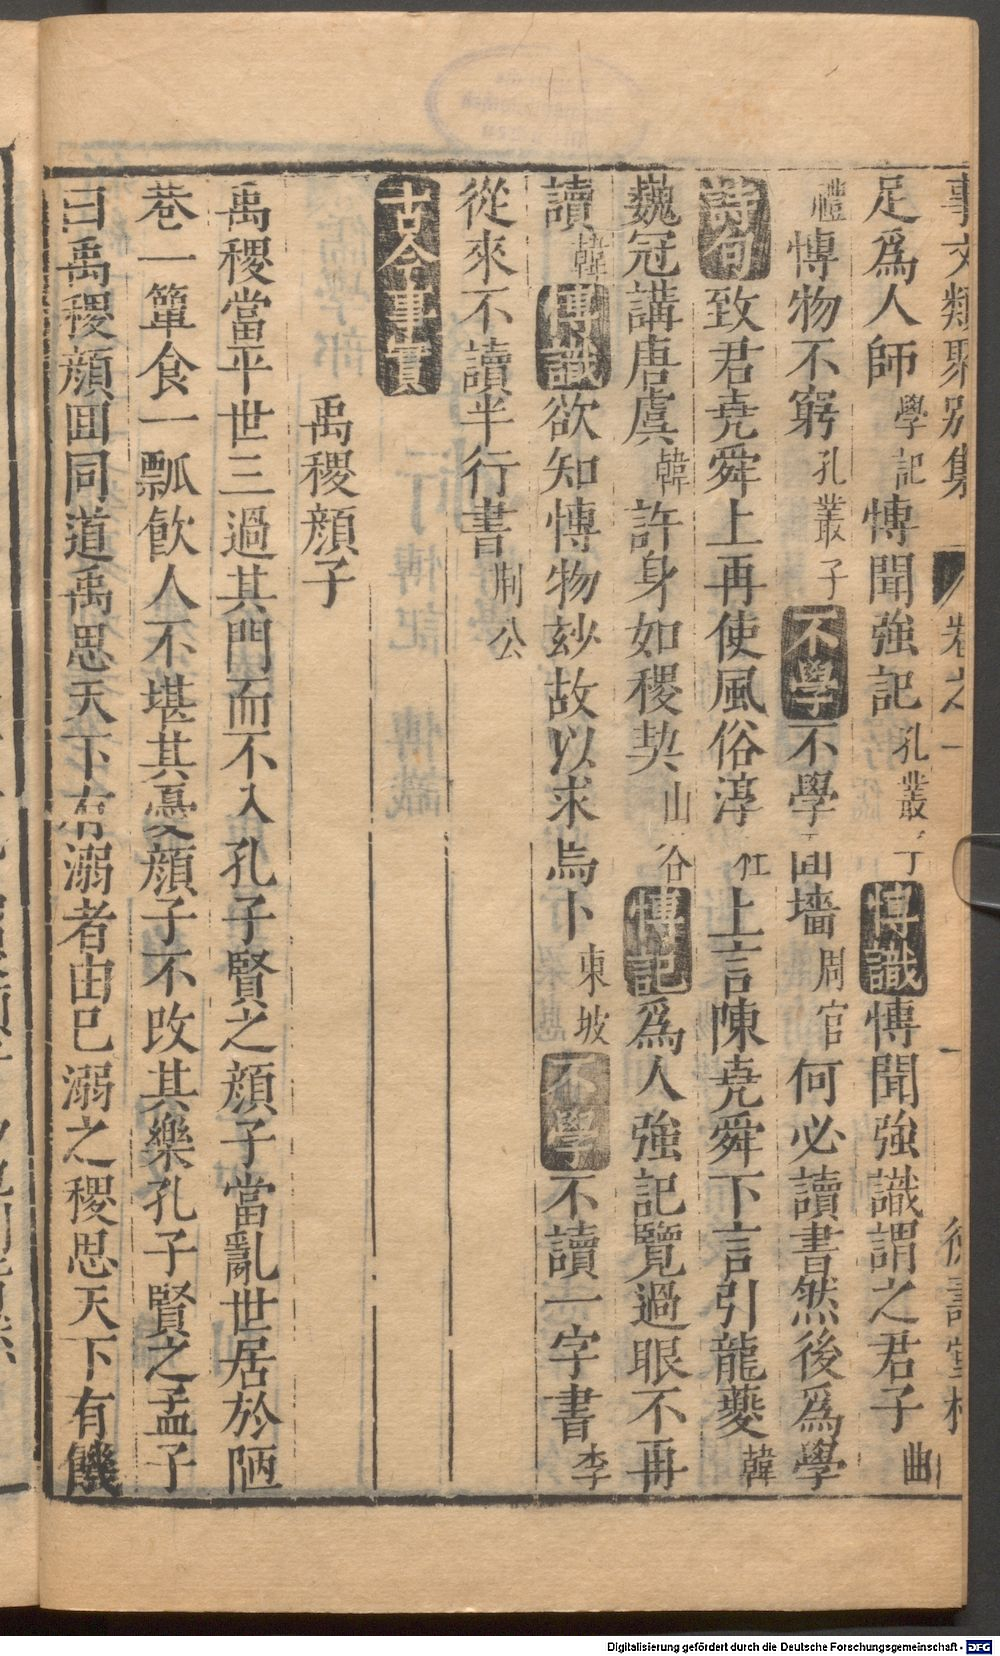 事文類聚別集 卷之一 一 德壽堂梓
足爲人師學記博聞強記孔叢子博識博聞強識謂之君子曲
禮博物不窮孔叢子不學不學面墻周官何必讀書然後爲學
詩句致君堯舜上再使風俗淳杜上言陳堯舜下言引龍夔韓
巍冠講唐虞韓許身如稷契山谷博記爲人強記覽過眼不再
讀韓博識欲知博物玅故以求烏卜東坡不學不讀一字書李
從來不讀半行書荆公
古今事實
禹稷顏子
禹稷當平世三過其門而不入孔子賢之顏子當亂世居於陋
巷一簞食一瓢飲人不堪其憂顏子不改其樂孔子賢之孟子
曰禹稷顏囬同道禹思天下有溺者由已溺之稷思天下有饑
Digitalisierung gefördert durch die Deutsche Forschungsgemeinschaft - DFG